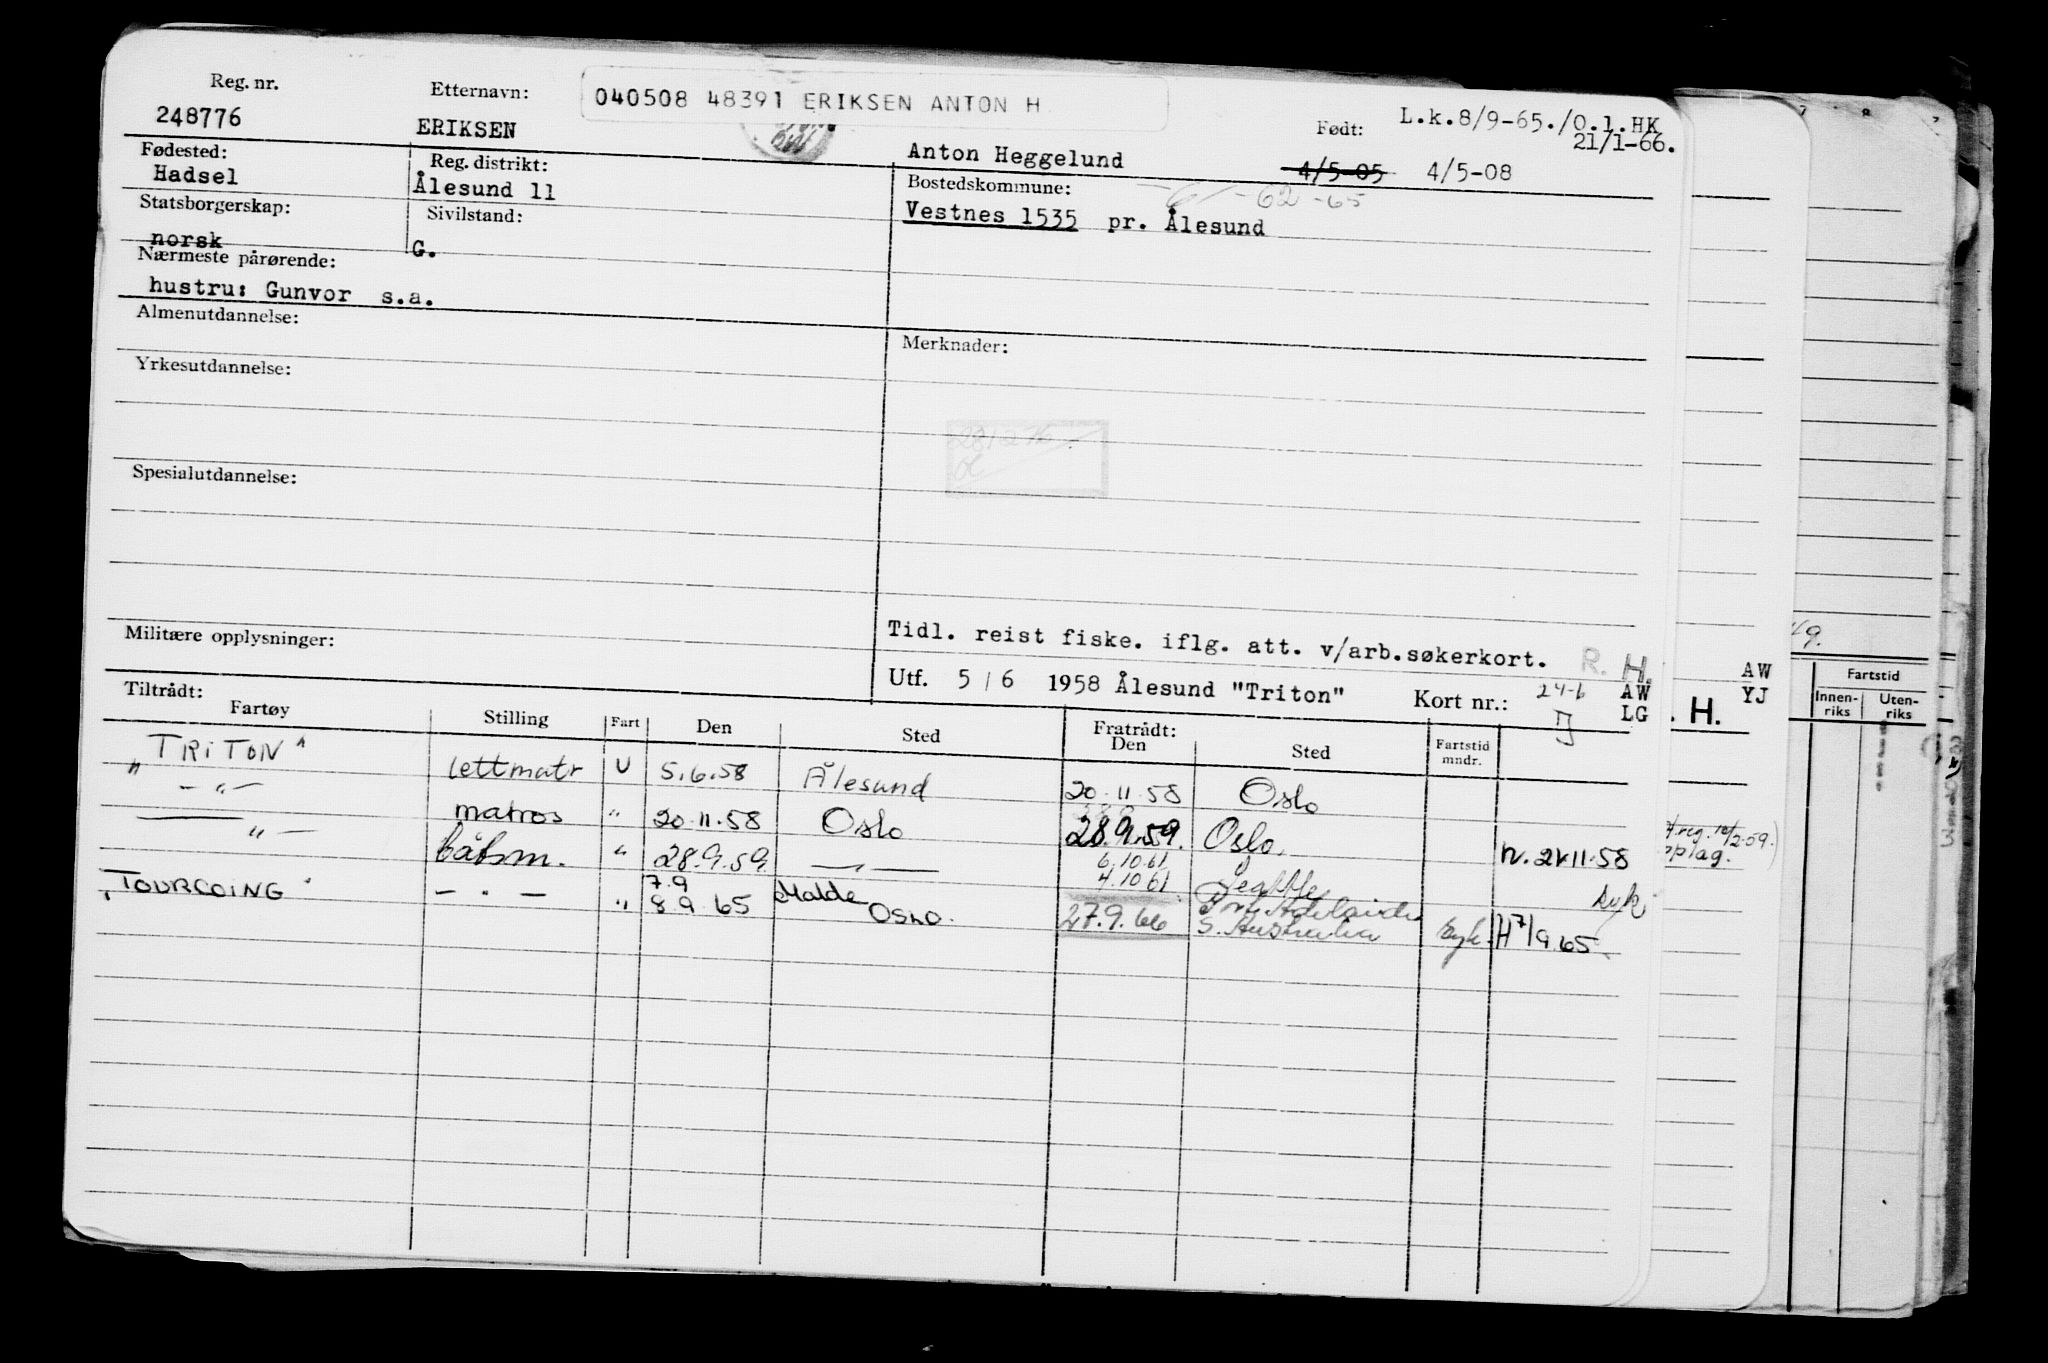 Reg. nr. Etternavn: 040508 48391 ERIKSEN ANTON H
L.k.8/9-65./O.l.HK
21/1-66.
248776 ERIKSEN Anton Heggelund Født: 4/5-05 4/5-08
Fødested: Reg. distrikt: Bostedskommune:
Hadsel Ålesund 11 -61-62-65
Statsborgerskap: Sivilstand: Vestnes 1535 pr. Ålesund
norsk G.
Nærmeste pårørende:
hustru: Gunvor s.a.
Almenutdannelse: Merknader:
Yrkesutdannelse:
Spesialutdannelse:
Militære opplysninger: Tidl. reist fiske. iflg. att. v/arb.søkerkort. R. H.
Utf. 5/6 1958 Ålesund "Triton" Kort nr.: 24-6 AW
LG
Tiltrådt: Fratrådt:
Fartøy Stilling Fart Den Sted Den Sted Fartstid mndr.
"TRITON" lettmatr U 5.6.58 Ålesund 20.11.58 Oslo
-"- matros " 20.11.58 Oslo 28.9.59. Oslo. n. 21.11.58
-"- båtsm. " 28.9.59 -"- 6.10.61
4.10.61 Seattle syk
"TOURCOING" -"- " 7.9
8.9.65 Molde
Oslo. 27.9.66 Port Adelaide
S. Australia syk. H 7/9.65
AW
YJ
. H.
reg. 10/2-59.)
opplag.
49.
Fartstid
Innen-
riks
Uten-
riks
7 8